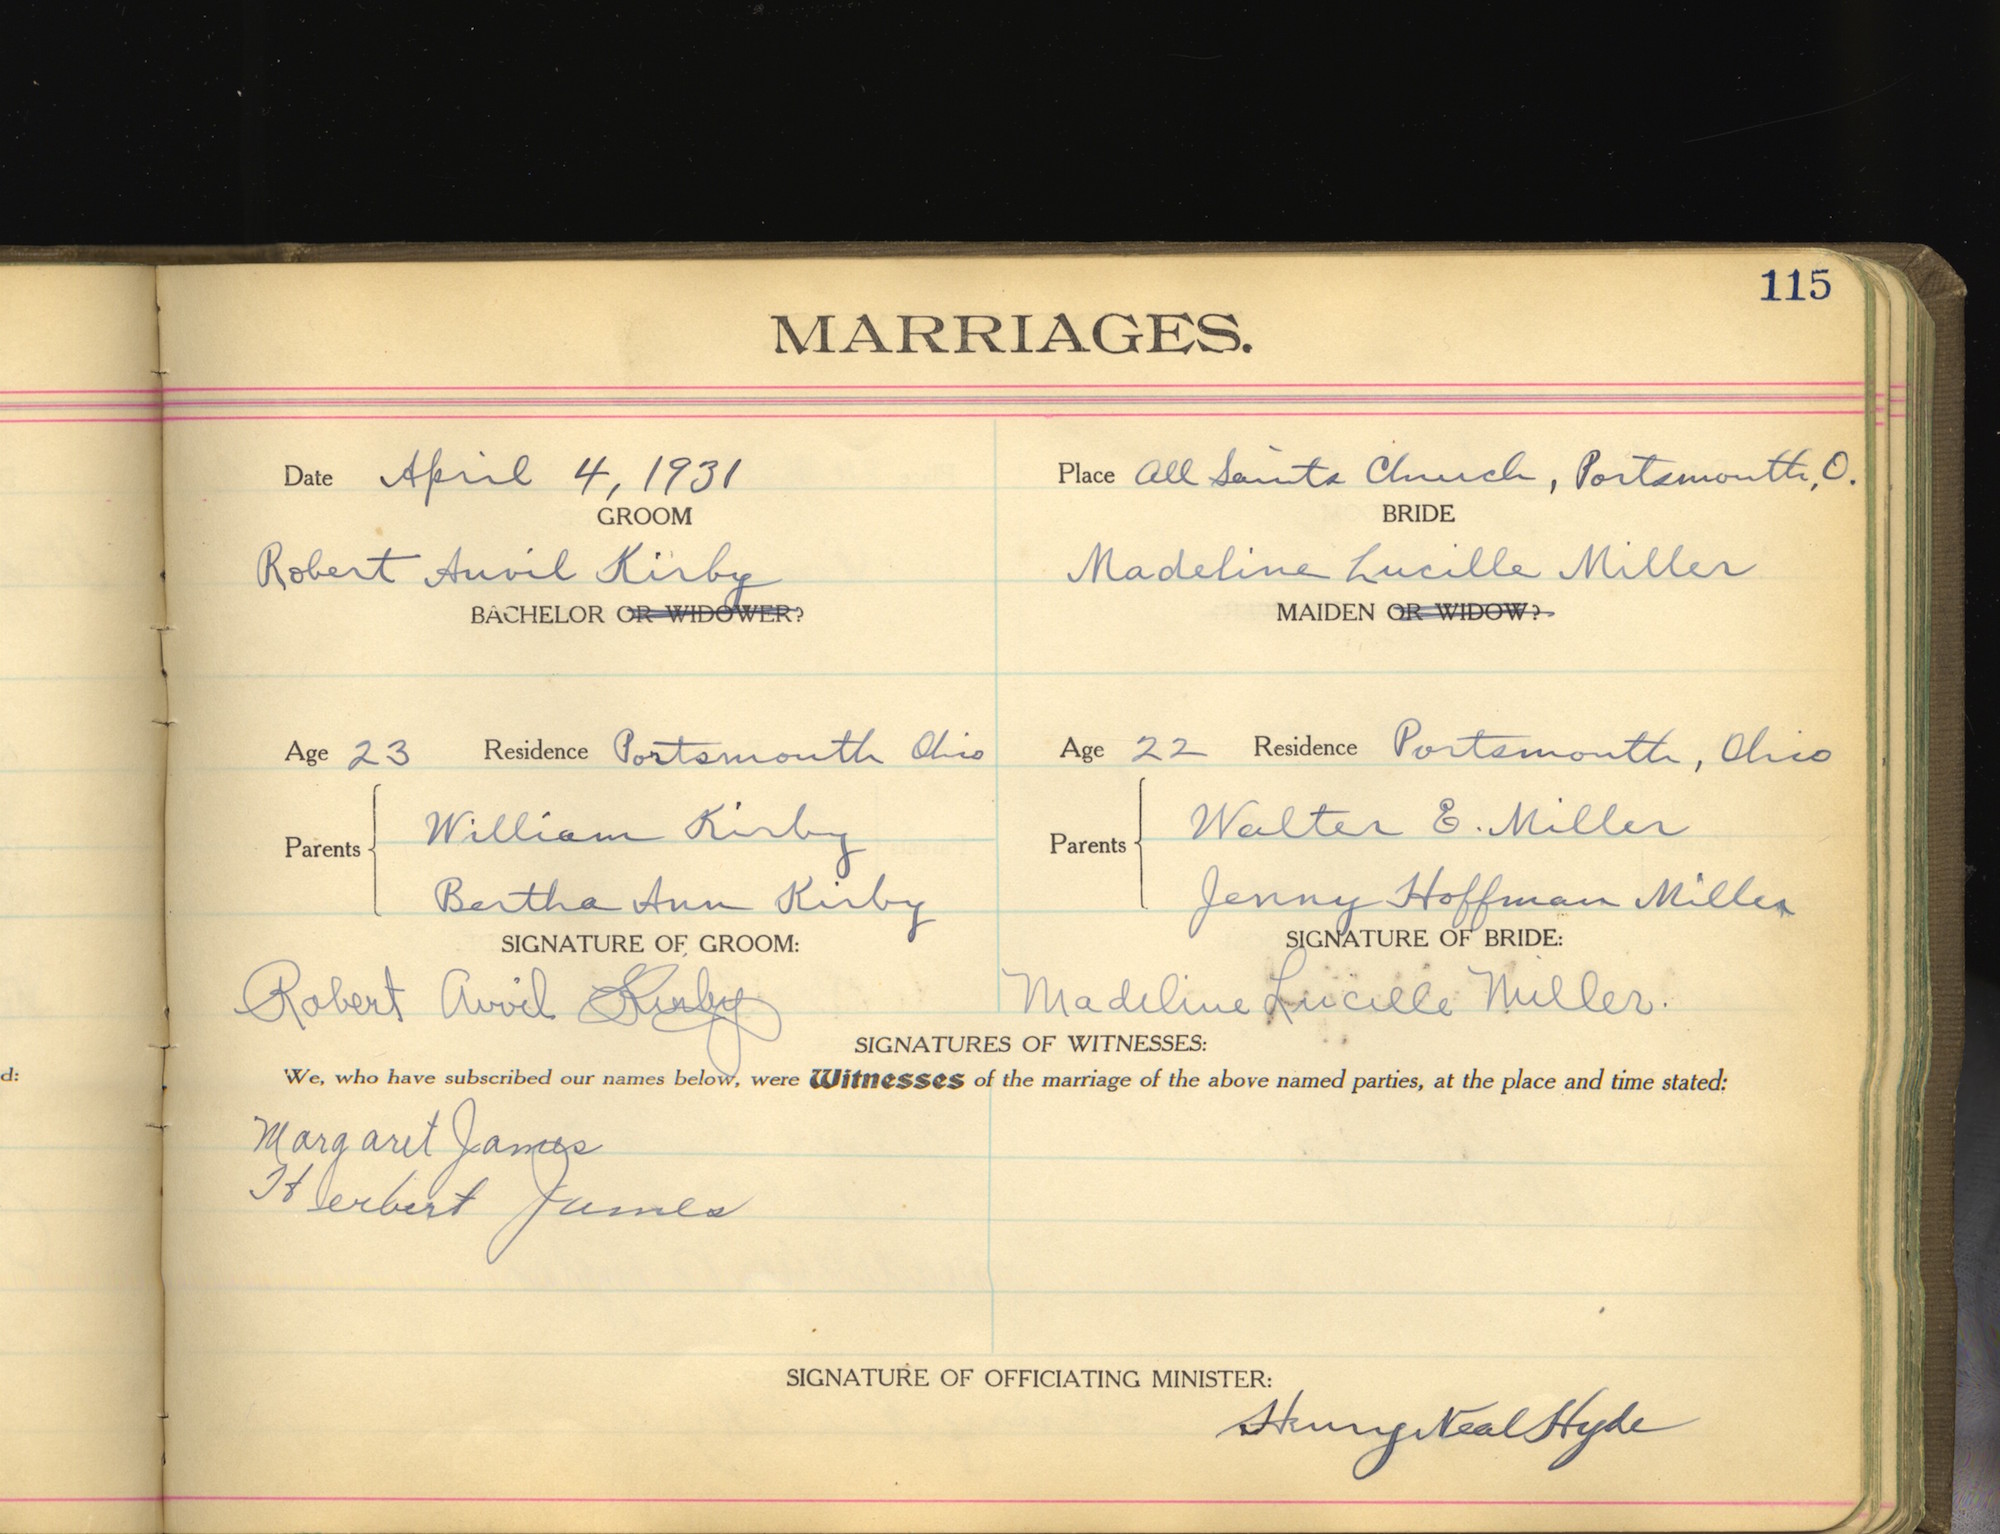 115
MARRIAGES.
Date April 4, 1931
Place All Saints Church, Portsmouth, O.
GROOM
BRIDE
Robert Anvil Kirby
Madeline Lucille Miller
BACHELOR OR WIDOWER?
MAIDEN OR WIDOW?
Age 23 Residence Portsmouth Ohio
Age 22 Residence Portsmouth, Ohio
Parents
William Kirby
Bertha Ann Kirby
Parents
Walter E. Miller
Jenny Hoffman Miller
SIGNATURE OF GROOM:
SIGNATURE OF BRIDE:
Robert Avvil Kirby
Madeline Lucille Miller.
SIGNATURES OF WITNESSES:
d:
We, who have subscribed our names below, were Witnesses of the marriage of the above named parties, at the place and time stated:
Margaret James
Herbert James
SIGNATURE OF OFFICIATING MINISTER:
Henry Neal Hyde